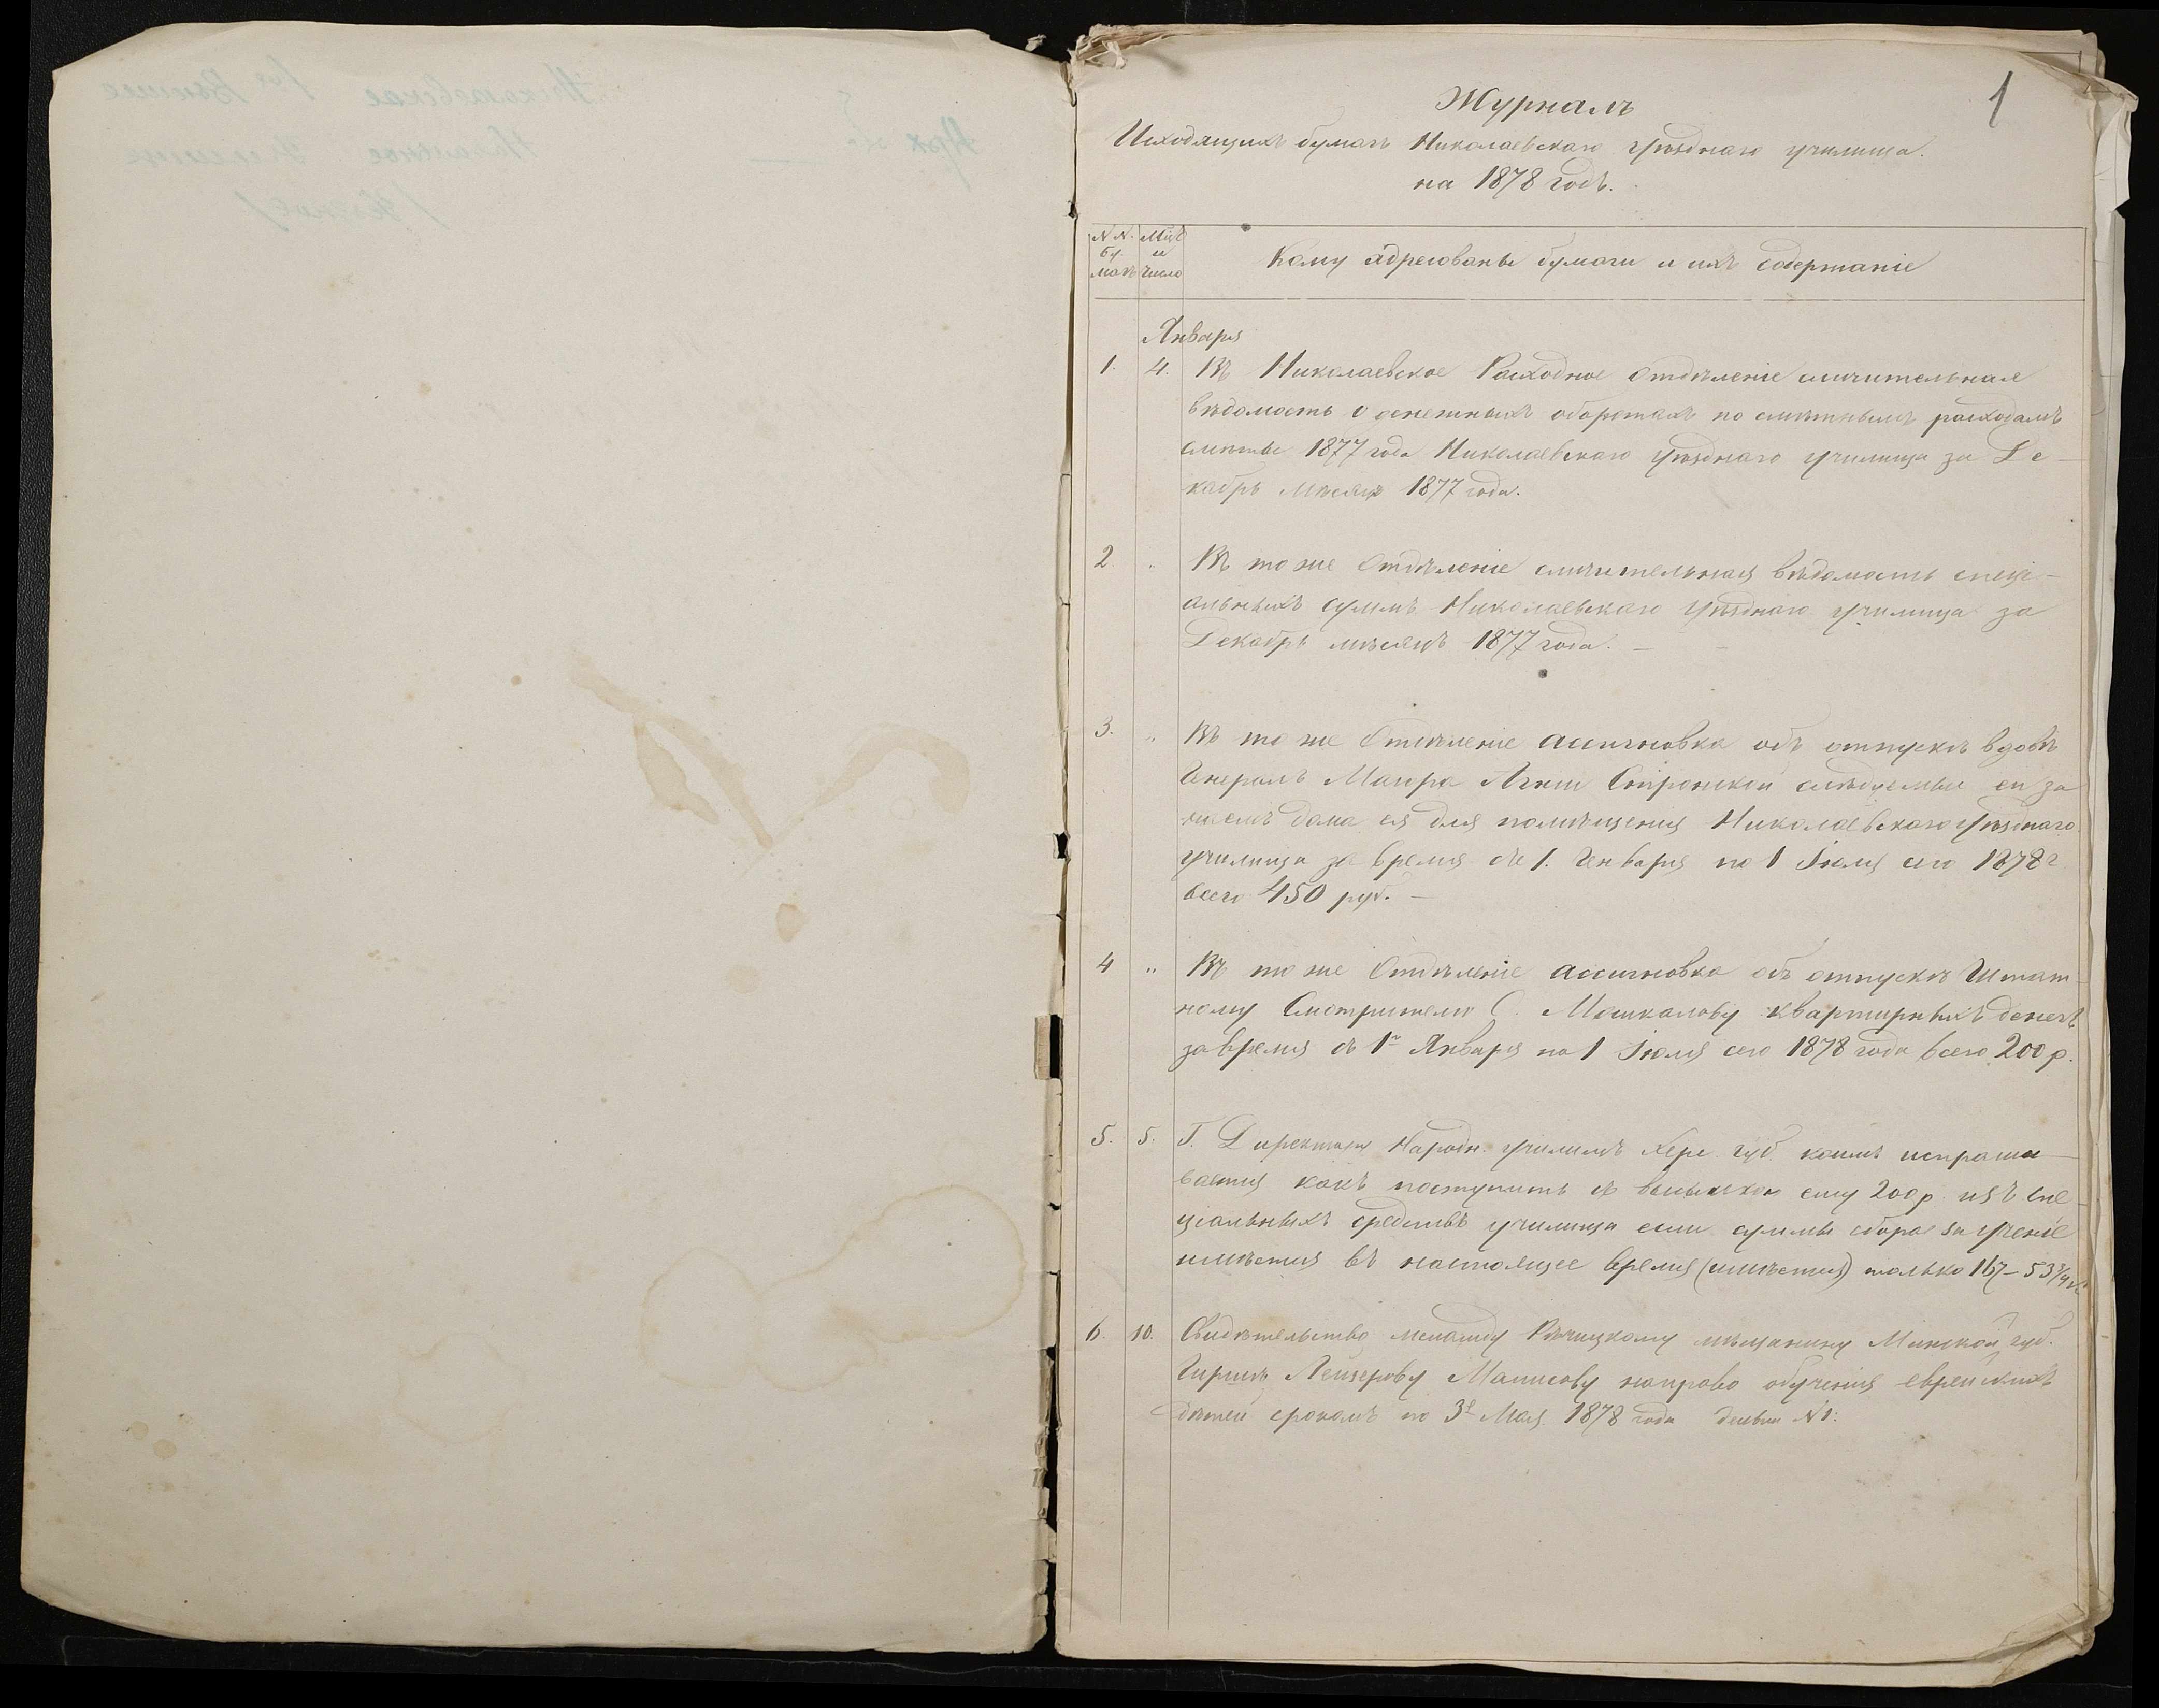 1
Журналъ
Исходящихъ бумагъ Николаевскаго уѣзднаго училища.
на 1878 годъ.
NN. бу магъ
Мцъ и число
Кому адресованы бумаги и ихъ содержаніе
Января
1. 4. Въ Николаевское Расходное Отдѣленіе сличительная
вѣдомость о денежныхъ оборотахъ по смѣтнымъ расходамъ
смѣты 1877 года Николаевскаго Уѣзднаго училища за Де-
кабрь мѣсяцъ 1877 года.
2. " Въ тоже Отдѣленіе сличительная вѣдомость специ-
альныхъ суммъ Николаевскаго Уѣзднаго училища за
Декабрь мѣсяцъ 1877 года. —
3. " Въ тоже Отдѣленіе ассигновка объ отпускѣ вдовѣ
Генералъ Маіора следуемые ей за
наемъ дома ея для помѣщенія Николаевскаго Уѣзднаго
училища за время съ 1. Генваря по 1 Іюля сего 1878 г
всего 450 руб. —
4 " Въ тоже Отдѣленіе ассигновка объ отпускѣ Штат
ному Смотрителю С. Машкалову квартирныхъ денегъ
за время съ 1го Января по 1 Іюля сего 1878 года всего 200 р.
5. 5. Г. Директору Народн. училищъ Херс. губ. коимъ испраши-
вается какъ поступить съ высылкою ему 200 р. изъ спе-
ціальныхъ средствъ училища если суммы сбора за ученіе
имѣется въ настоящее время (имѣется) только 167 – 53 3/4 к
6. 10. Свидѣтельство меламду Рѣчицкому мѣщанину Минской губ.
Гиршѣ Лейзерову направо обученія еврейскихъ
дѣтей срокомъ по 3е Мая 1878 года N 1.